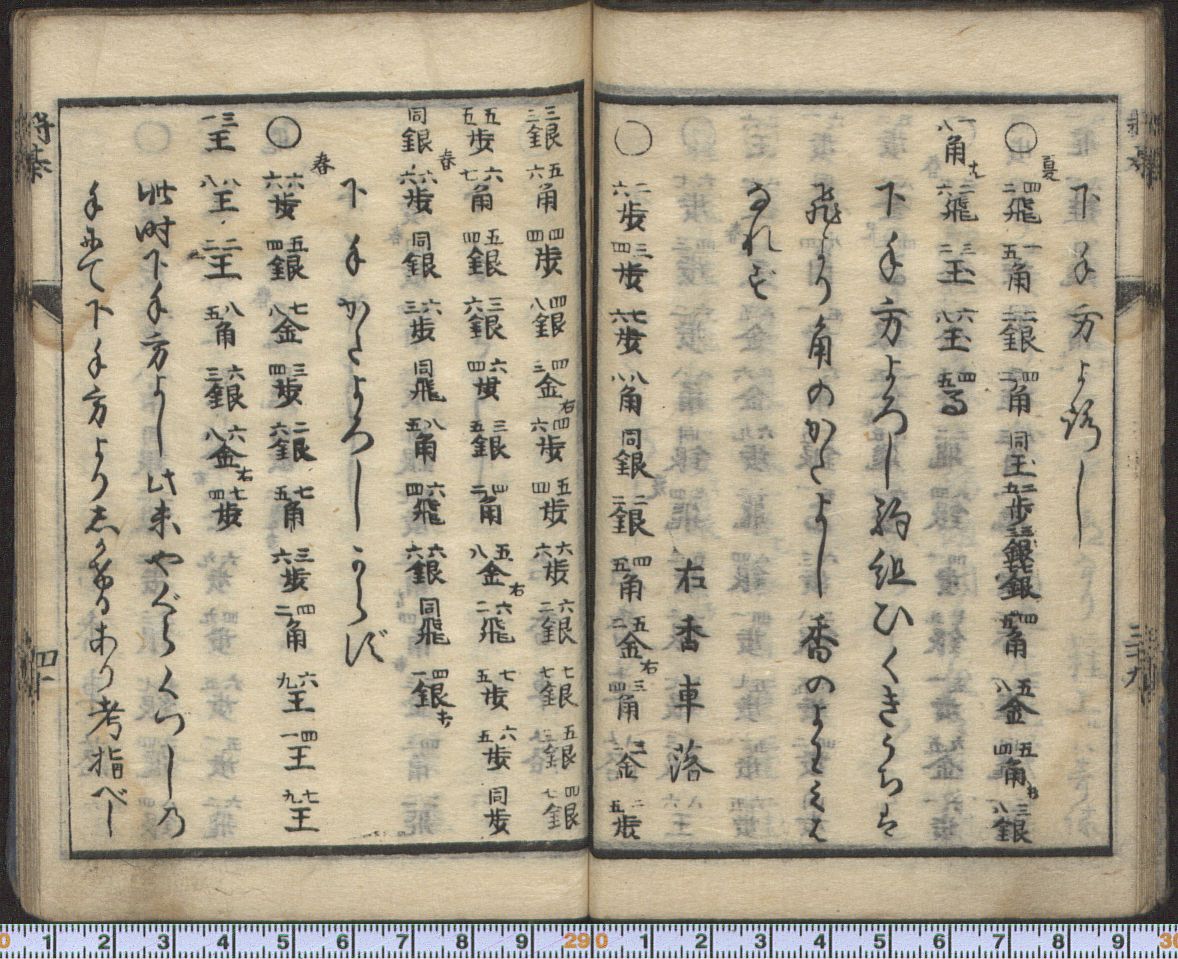 下手方よ路し
○夏 四二飛 一五角 二二銀 四二角 同王 二五歩 三三銀 七七銀 四九角 五八金 五四角打 三八銀
一八角成 二六飛 三二玉 六八玉 四五馬
下手方よろし駒組ひくきうちは
飛より角のかたよし香のよわみも
なれど
右香車落
○ 二六歩 三四歩 七六歩 八八角 同銀 二二銀 四五角 五二金右 三四角 三二金 二五歩
三九
三三銀 五六角 四四歩 四八銀 四三金右 四六歩 五四歩 六六歩 六二銀 七七銀 五三銀 四七銀
五五歩 六七角 五四銀 三六銀 六四歩 三五銀 四二角 五八金右 六二飛 七五歩 六五歩 同歩
同銀 春 六六歩 同銀 六三歩 同飛 八五角 六四飛 六六銀 同飛 四一銀打
下手かたよろしからず
○春 六六歩 五四銀 七八金 三四歩 二六銀 七五角 三六歩 四二角 六九王 四一王 七九王
三一王 八八王 二二王 八五角 六三銀 六八金右 七四歩
此時下手方よし此末やぐらくづしの
手にて下手方よりしかけあり考指べし
将棊
四十